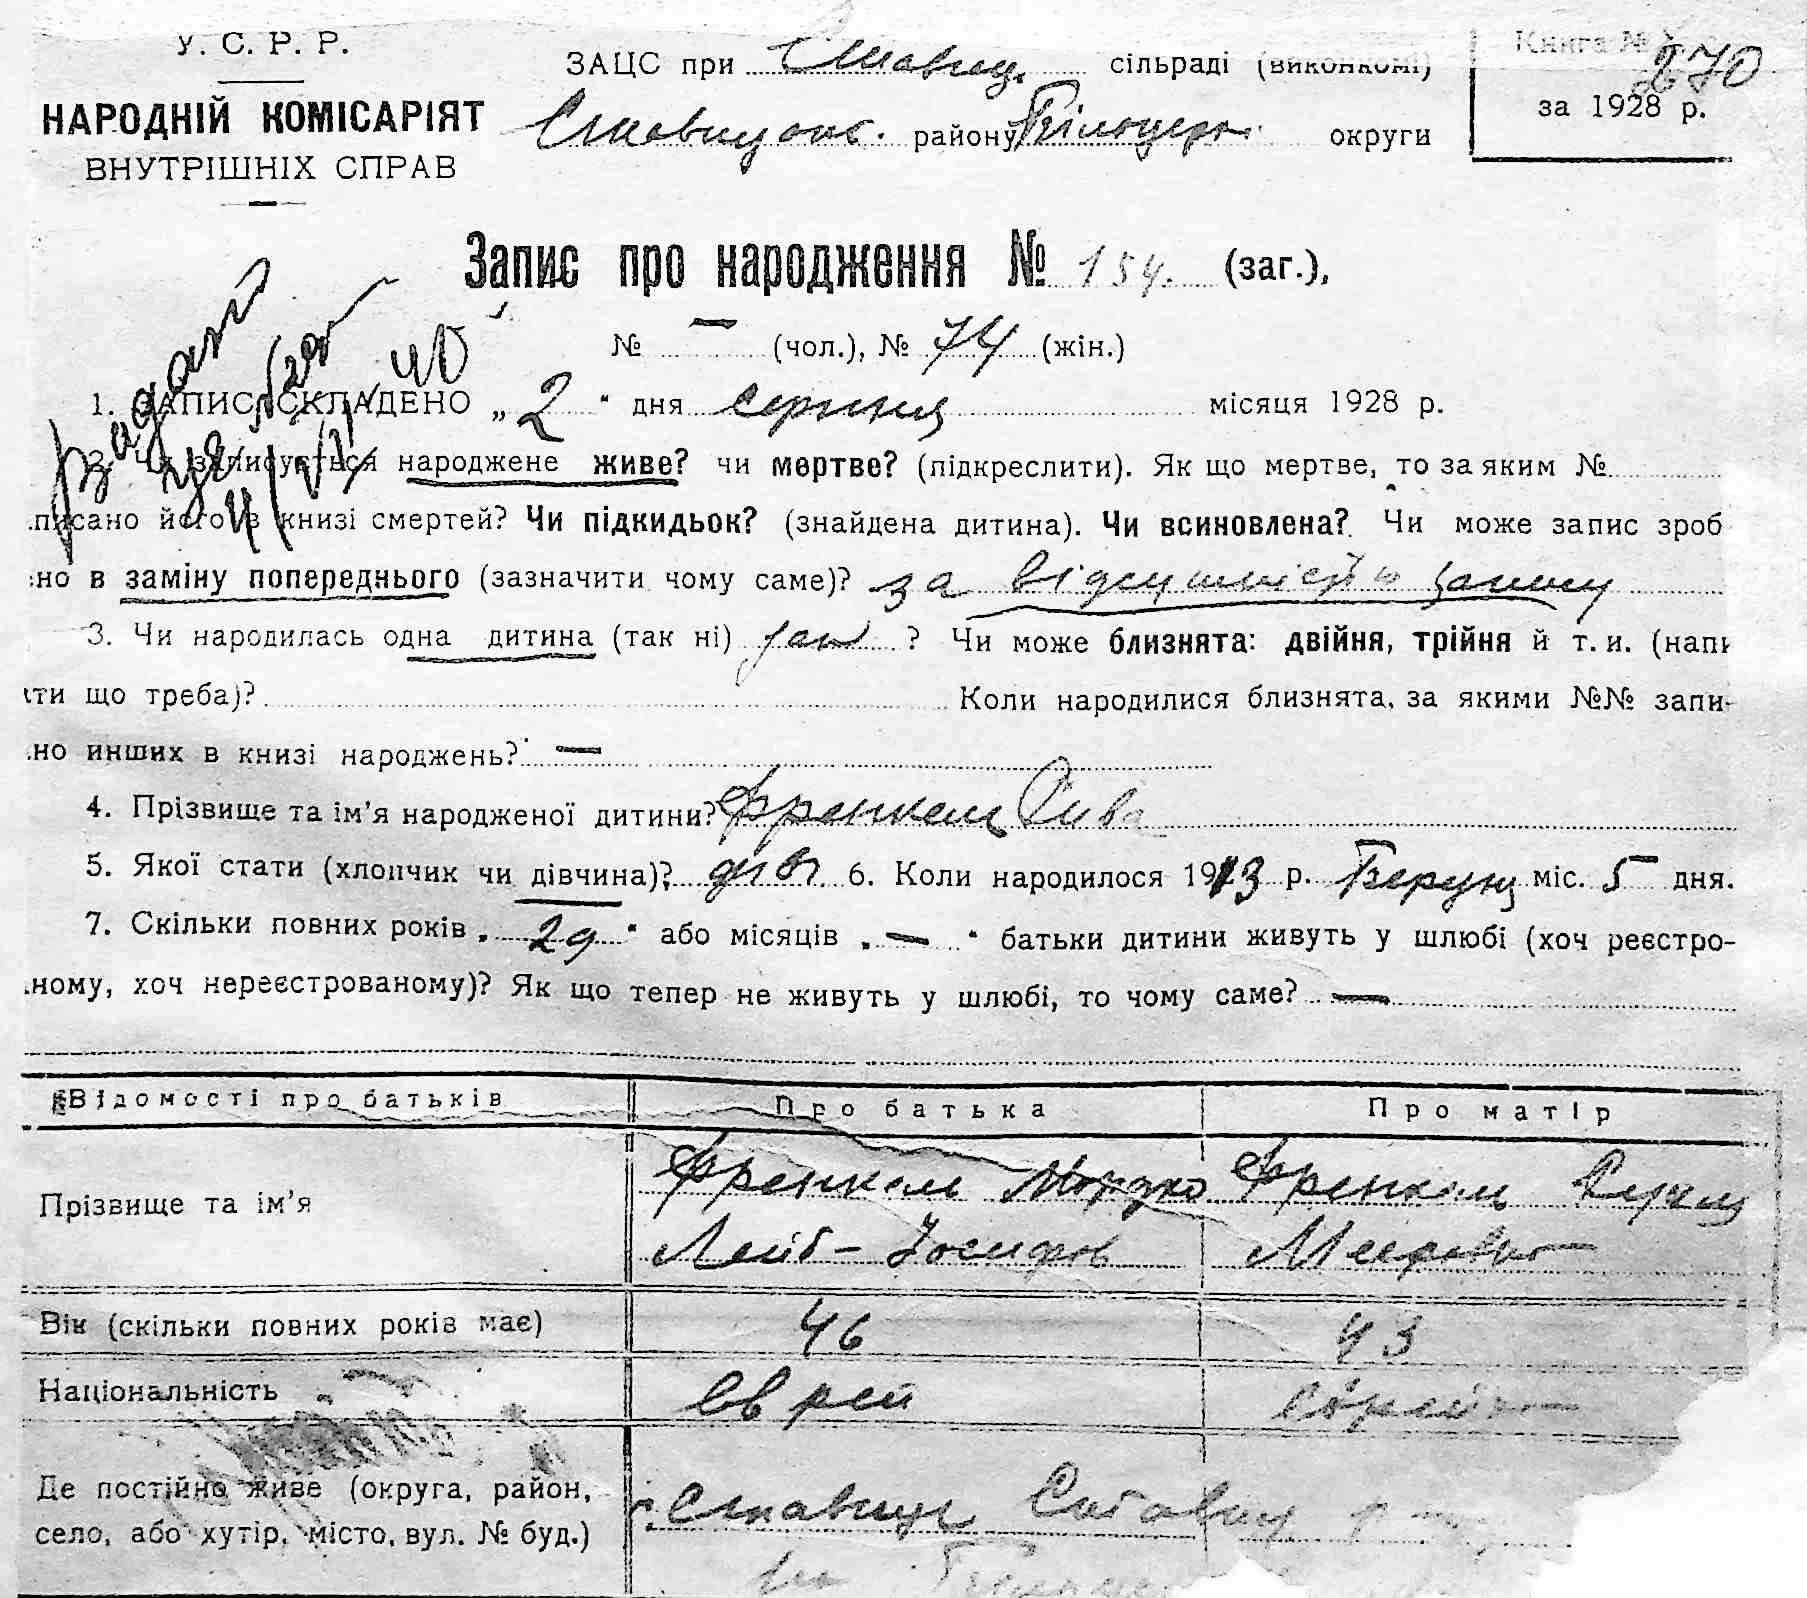 У. С. Р. Р.
НАРОДНІЙ КОМІСАРІЯТ
ВНУТРІШНІХ СПРАВ
ЗАЦС при Ставищ. сільраді (виконкомі)
Ставищанс. району Білоцерк. округи
Книга № 270
за 1928 р.
Запис про народження № 154. (заг.),
№ — (чол.), № 74 (жін.)
1. ЗАПИС СКЛАДЕНО „ 2 “ дня серпня місяця 1928 р.
2. Чи записується народжене живе? чи мертве? (підкреслити). Як що мертве, то за яким №
писано його в книзі смертей? Чи підкидьок? (знайдена дитина). Чи всиновлена? Чи може запис зроб
но в заміну попереднього (зазначити чому саме)? за відсутністю запису
3. Чи народилась одна дитина (так ні) так ? Чи може близнята: двійня, трійня й т. и. (напи
ти що треба)? Коли народилися близнята, за якими №№ запи-
но инших в книзі народжень? —
4. Прізвище та ім'я народженої дитини? Френкель Рива
5. Якої стати (хлопчик чи дівчина)? дівч. 6. Коли народилося 1913 р. міс. 5 дня.
7. Скільки повних років „ 29 “ або місяців „ — “ батьки дитини живуть у шлюбі (хоч реєстро-
ному, хоч нереєстрованому)? Як що тепер не живуть у шлюбі, то чому саме? —
Відомості про батьків Про батька Про матір
Прізвище та ім'я Френкель Мордко Френкель
Лейб-Йосипов Меєровна
Вік (скільки повних років має) 46 43
Національність Єврей Єврейка
Де постійно живе (округа, район,
село, або хутір, місто, вул. № буд.) Ставище